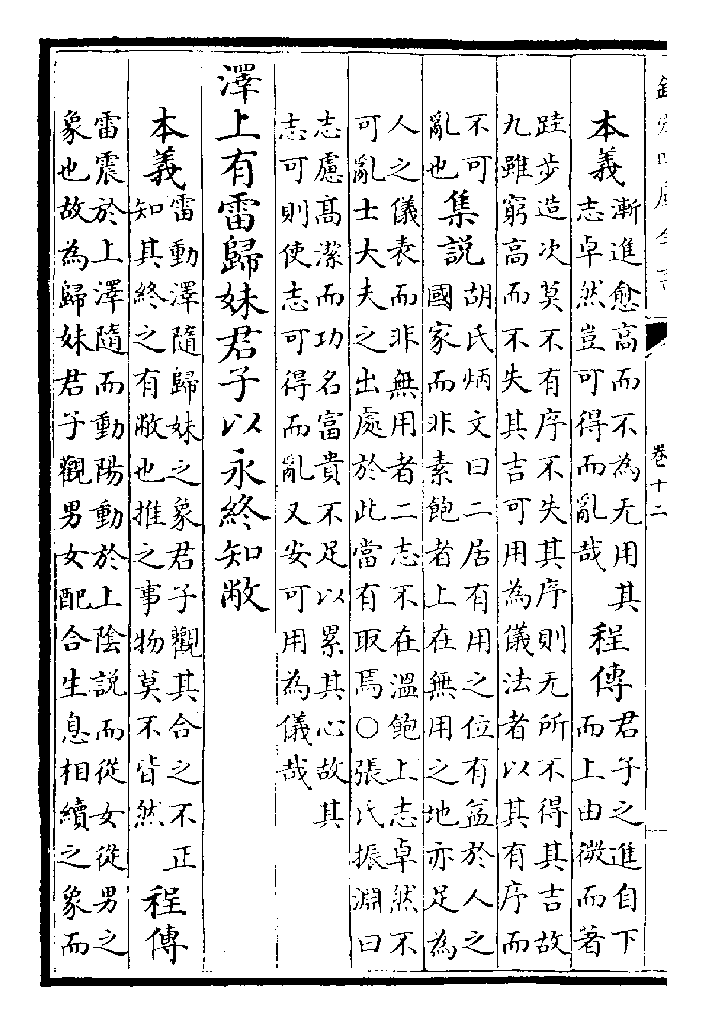 欽定四庫全書
卷十二
本義漸進愈高而不為无用其
志卓然豈可得而亂哉
程傳君子之進自下
而上由微而著
跬步造次莫不有序不失其序則无所不得其吉故
九雖窮高而不失其吉可用為儀法者以其有序而
不可
亂也
集説胡氏炳文曰二居有用之位有益於人之
國家而非素飽者上在無用之地亦足為
人之儀表而非無用者二志不在溫飽上志卓然不
可亂士大夫之出處於此當有取焉○張氏振淵曰
志慮髙潔而功名富貴不足以累其心故其
志可則使志可得而亂又安可用為儀哉
澤上有雷歸妹君子以永終知敝
本義雷動澤隨歸妹之象君子觀其合之不正
知其終之有敝也推之事物莫不皆然
程傳
雷震於上澤隨而動陽動於上陰説而從女從男之
象也故為歸妹君子觀男女配合生息相續之象而